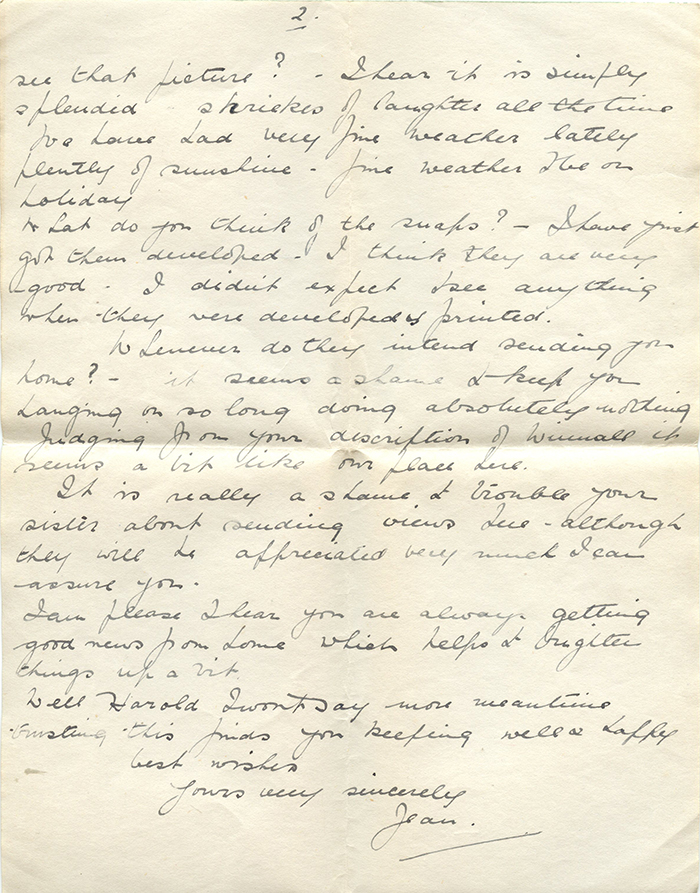 2.
see that picture? - I hear it is simply
splendid shriekes of laughter all the time
We have had very fine weather lately
plently of sunshine - fine weather to be on
holiday
What do you think of the snaps? - I have just
got them developed - I think they are very
good. I didn't expect to see anything
when they were developed & printed.
Whenever do they intend sending you
home? - it seems a shame to keep you
hanging on so long doing absolutely nothing
Judging from your description of Winnall it
seems a bit like our place here.
It is really a shame to trouble your
sister about sending views here - although
they will be appreciated very much I can
assure you.
I am please to hear you are always getting
good news from home which helps to brighten
things up a bit.
Well Harold I wont say more meantime
trusting this finds you keeping well & happy
best wishes
Yours very sincerely
Jean.